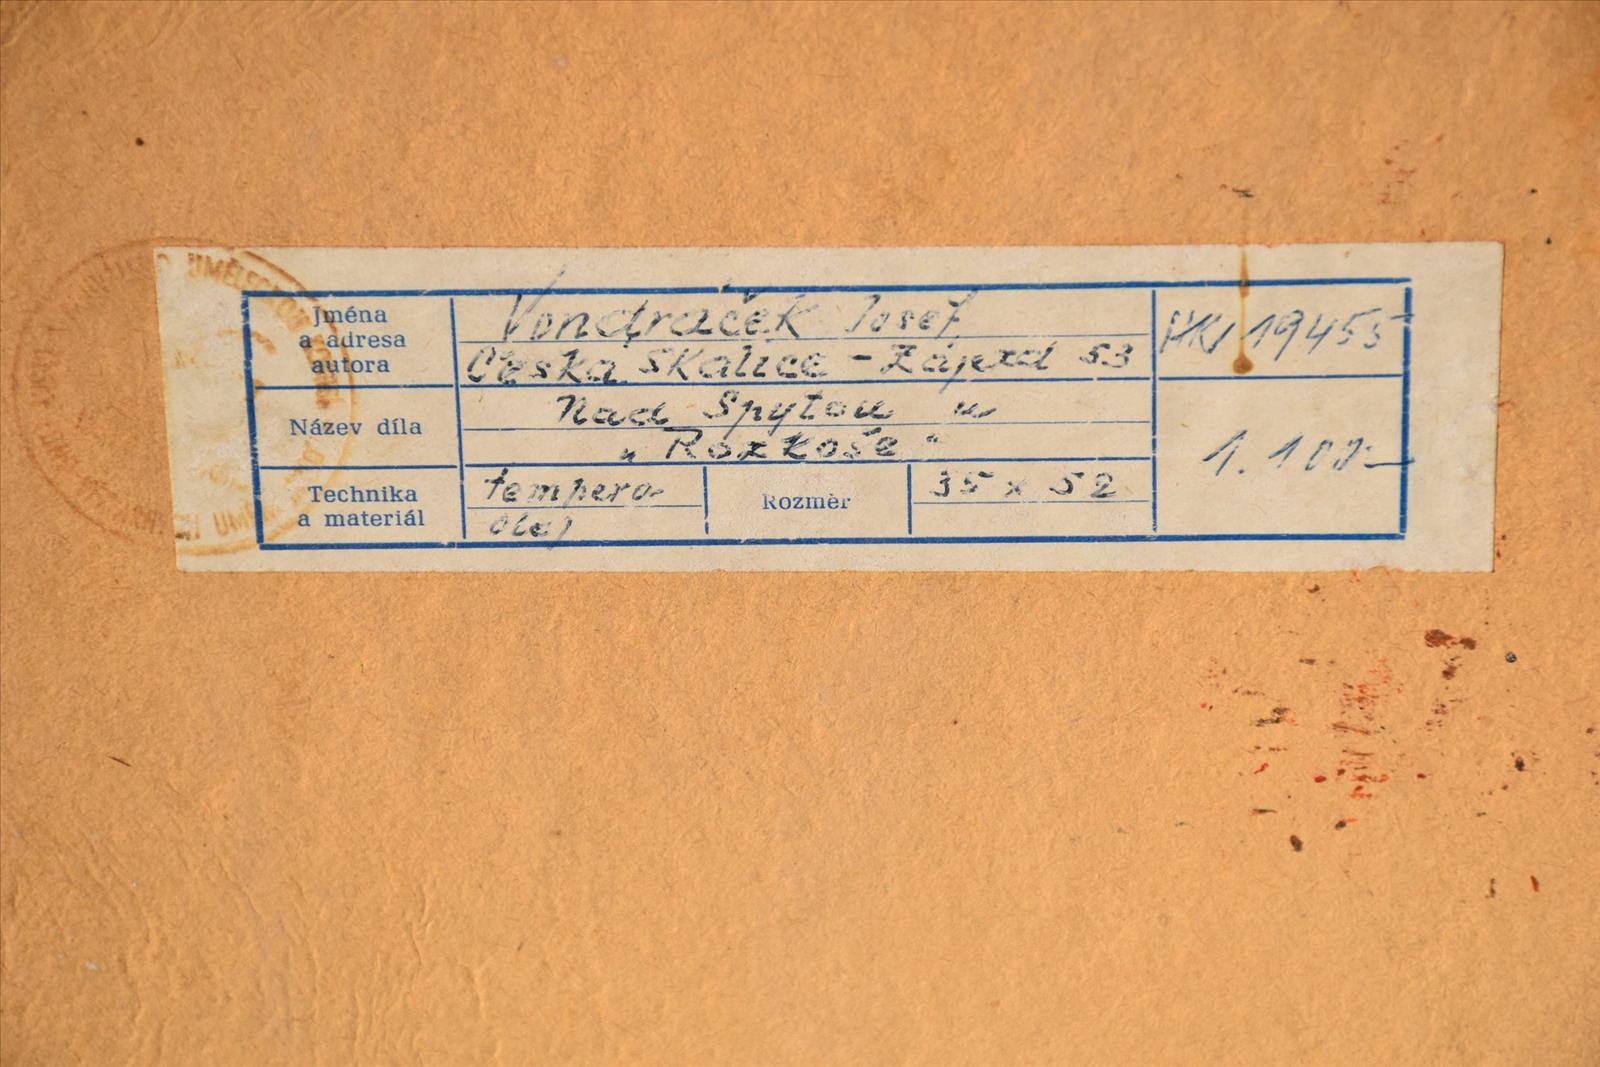 Jména
a adresa
autora
Vondráček Josef
Česká Skalice - Zájezd 53
HK/19455
Název díla
Nad Spytou u
„Rozkoše“
1.100,-
Technika
a materiál
tempera
olej
Rozměr
35 x 52
UMĚLECKOU